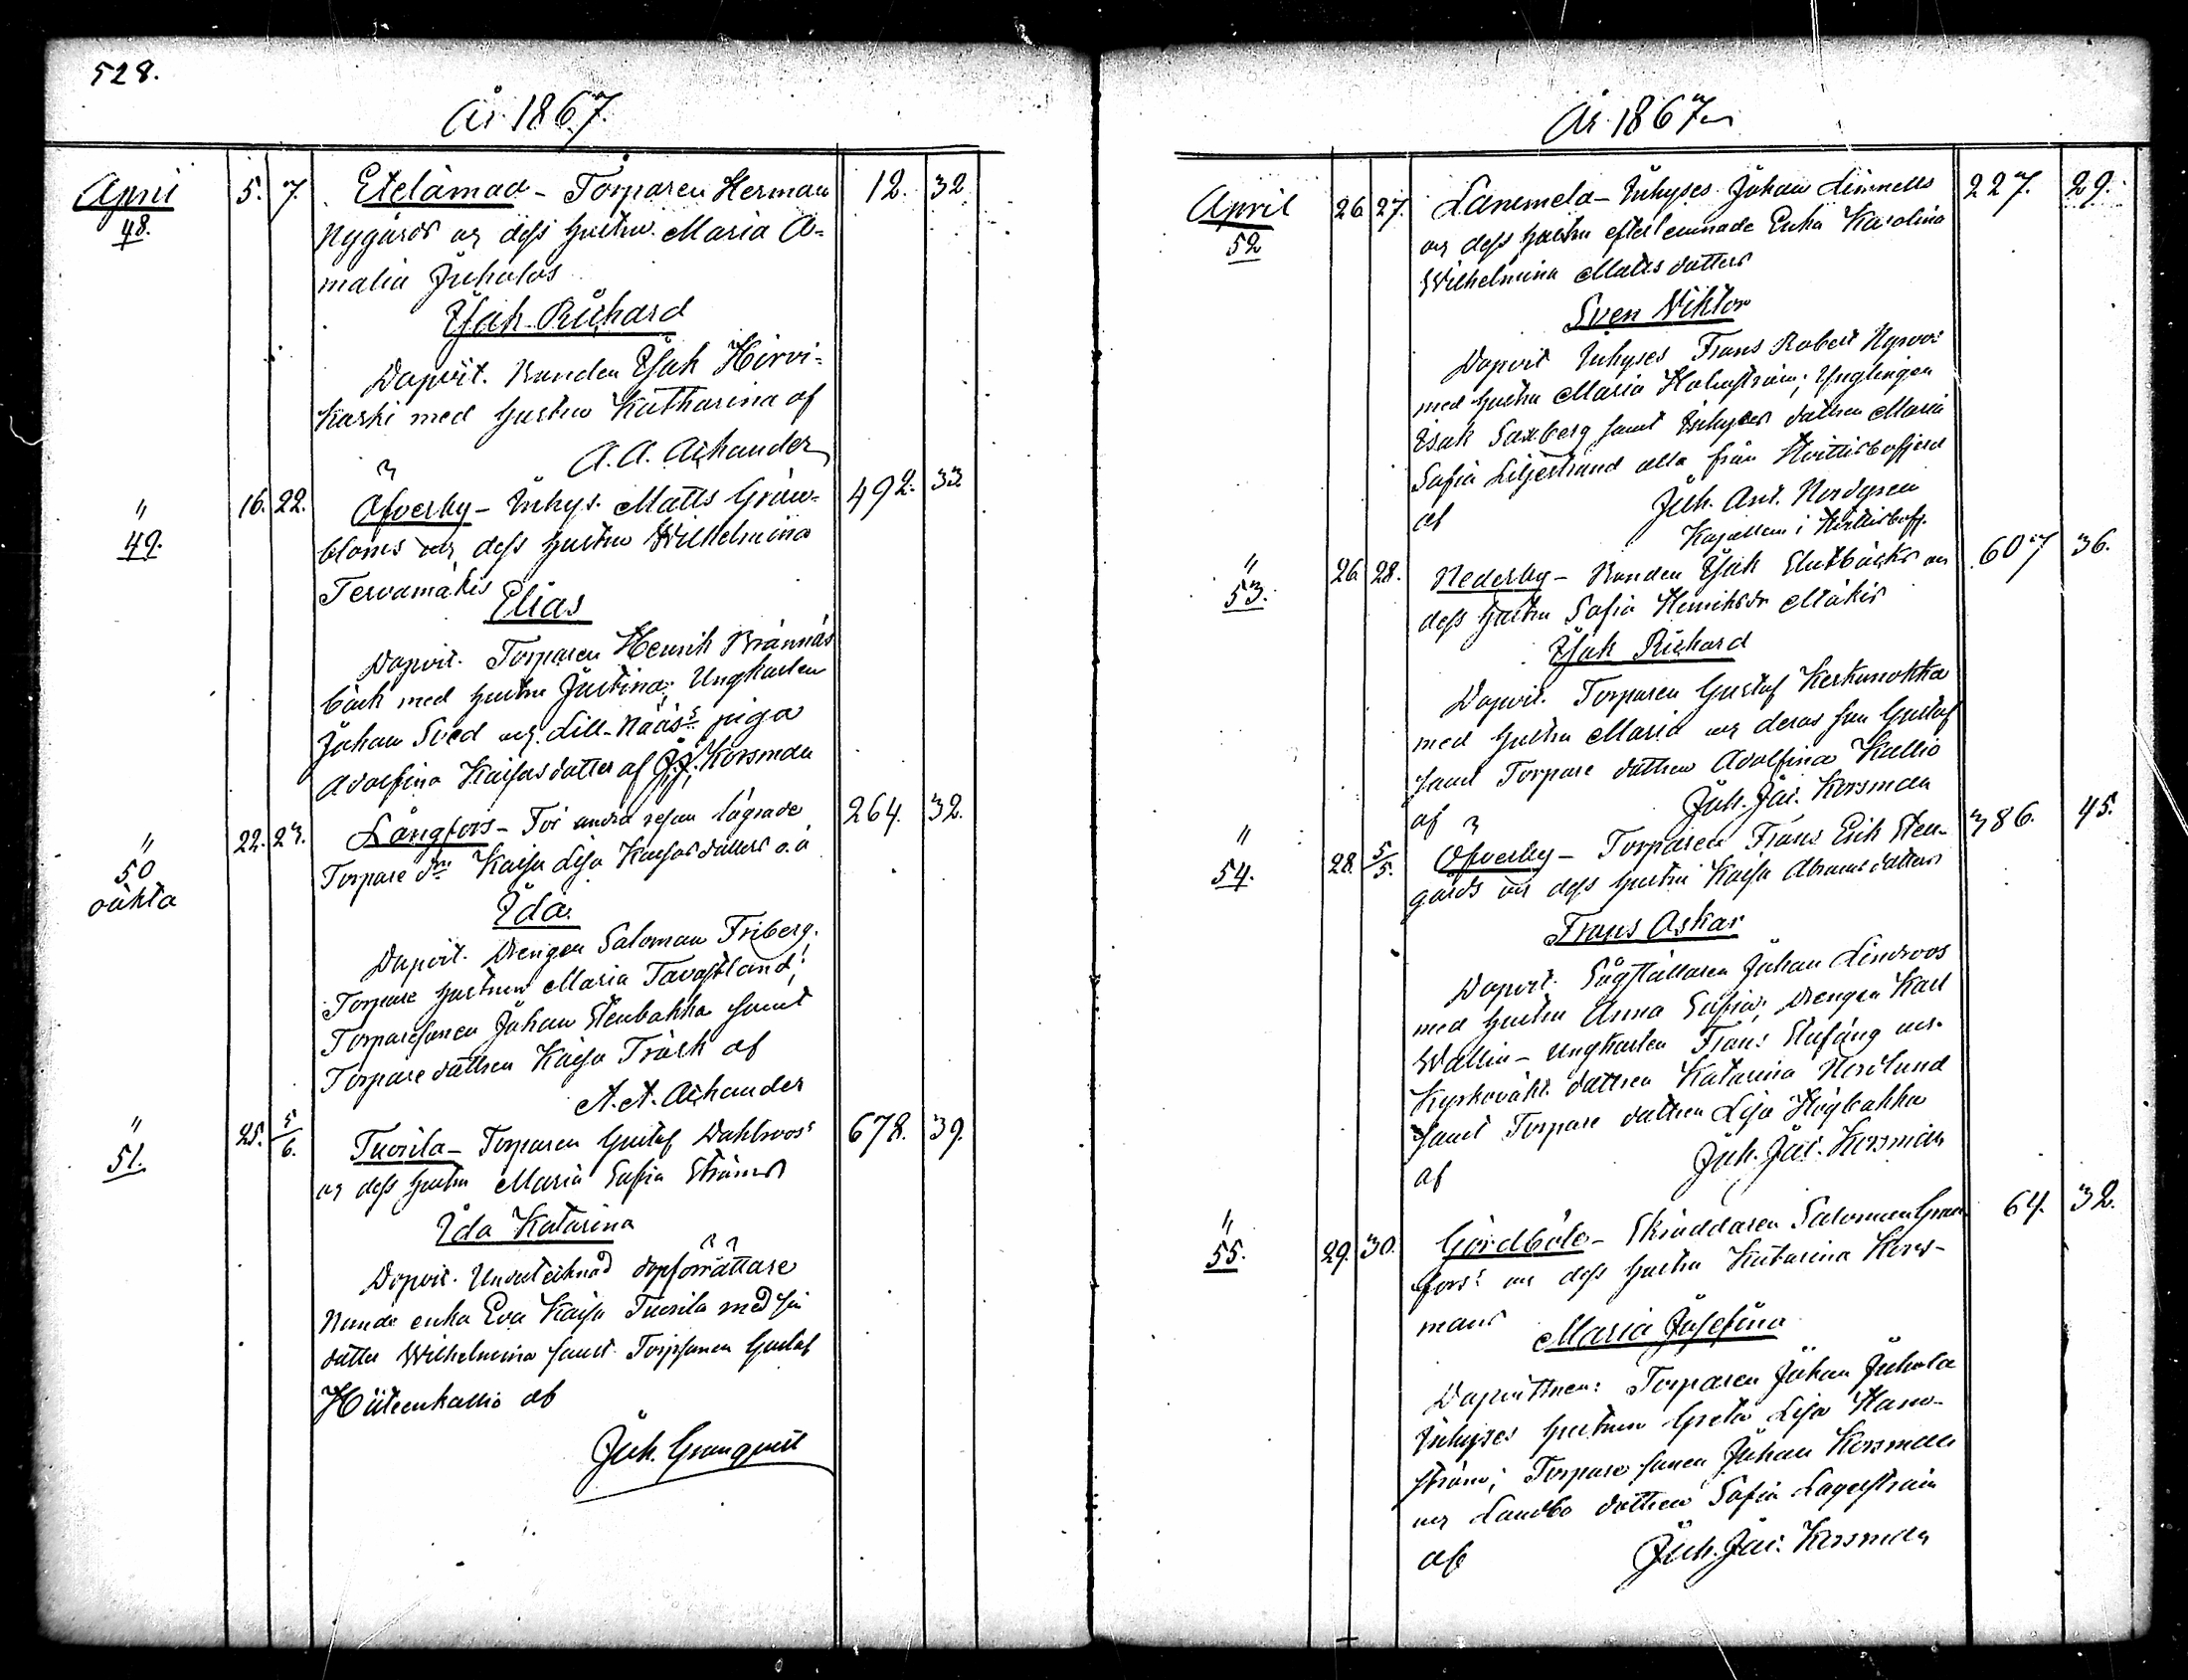 528.
År 1867.
April 5. 7. Etelämaa – Torparen Herman 12. 32
48. Nygårds och dess hustru Maria A=
malia Juholas
Isak Richard
Dopvit. Bonden Isak Hirvi=
kaski med hustru Katharina af
A. A. Archander
" 16. 22. Öfverby – Inhys. Matts Grön= 492. 33
49. bloms och dess hustru Wilhelmina
Tervamäkis
Elias
Dopvit. Torparen Henrik Brännäs
back med hustru Justina; Ungkarlen
Johan Sved och Lill-Nääs piga
Adolfina Kaisasdotter af J.J. Korsman
" 22. 23. Långfors – För andra resan lägrade 264. 32.
50 Torpare d:n Kaisa Lisa Kaisasdotters o.ä
oäkta
Ida.
Dopvit. Drengen Saloman Friberg.
Torpare hustrun Maria Tavastland;
Torparesonen Johan Stenbakka samt
Torparedottren Kaisa Träsk af
A. A. Archander
" 25. 5/6. Tuorila – Torparen Gustaf Dahlroos' 678. 39.
51. och dess hustru Maria Sofia Ströms
Ida Katarina
Dopvit. Undertecknad dopförrättare
Bonde enka Eva Kaisa Tuorila med sin
dotter Wilhelmina samt Torpsonen Gustaf
Hiiteenkallio af
Joh. Granqvist
År 1867
April 26 27. Lammela – Inhyses Johan Linnells 227. 29.
52 och dess hustru efterlemnade Enka Karolina
Wilhelmina Mattsdotters
Sven Viktor
Dopvit Inhyses Frans Robert Nyroos
med hustru Maria Holmström; Ynglingen
Isak Saxberg samt Inhyses dottren Maria
Sofia Liljestrand alla från Hvittisbofjerd
af Joh. Ant. Nordgren
Kapellan i Hvittisbofj.
" 26. 28. Nederby – Bonden Isak Slutbäcks och 607 36.
53. dess hustru Sofia Henriksdr Mäkis
Isak Richard
Dopvit. Torparen Gustaf Keskinokka
med hustru Maria och deras son Gustaf
samt Torpare dottren Adolfina Kallio
af Joh. Jac. Korsman
" 28. 5/5. Öfverby – Torparen Frans Erik Sten- 386. 45.
54. gårds och dess hustru Kaisa Abramsdotters
Frans Oskar
Dopvit. Sågställaren Johan Lindroos
med hustru Anna Sofia; Drengen Karl
Wallin – Ungkarlen Frans Slufång och
Kyrkovakt. dottren Katarina Nordlund
samt Torpare dottren Lisa Högbakka
af Joh. Jac. Korsman
" 29. 30. Gördböle – Skräddaren Saloman Gran 64. 32.
55. fors' och dess hustru Katarina Kors-
mans
Maria Josefina
Dopvittnen: Torparen Johan Juhola
Inhyses hustrun Greta Lisa Hamn-
ström; Torpare sonen Johan Korsman
och Landbo dottren Sofia Lagerström
af Joh. Jac. Korsman